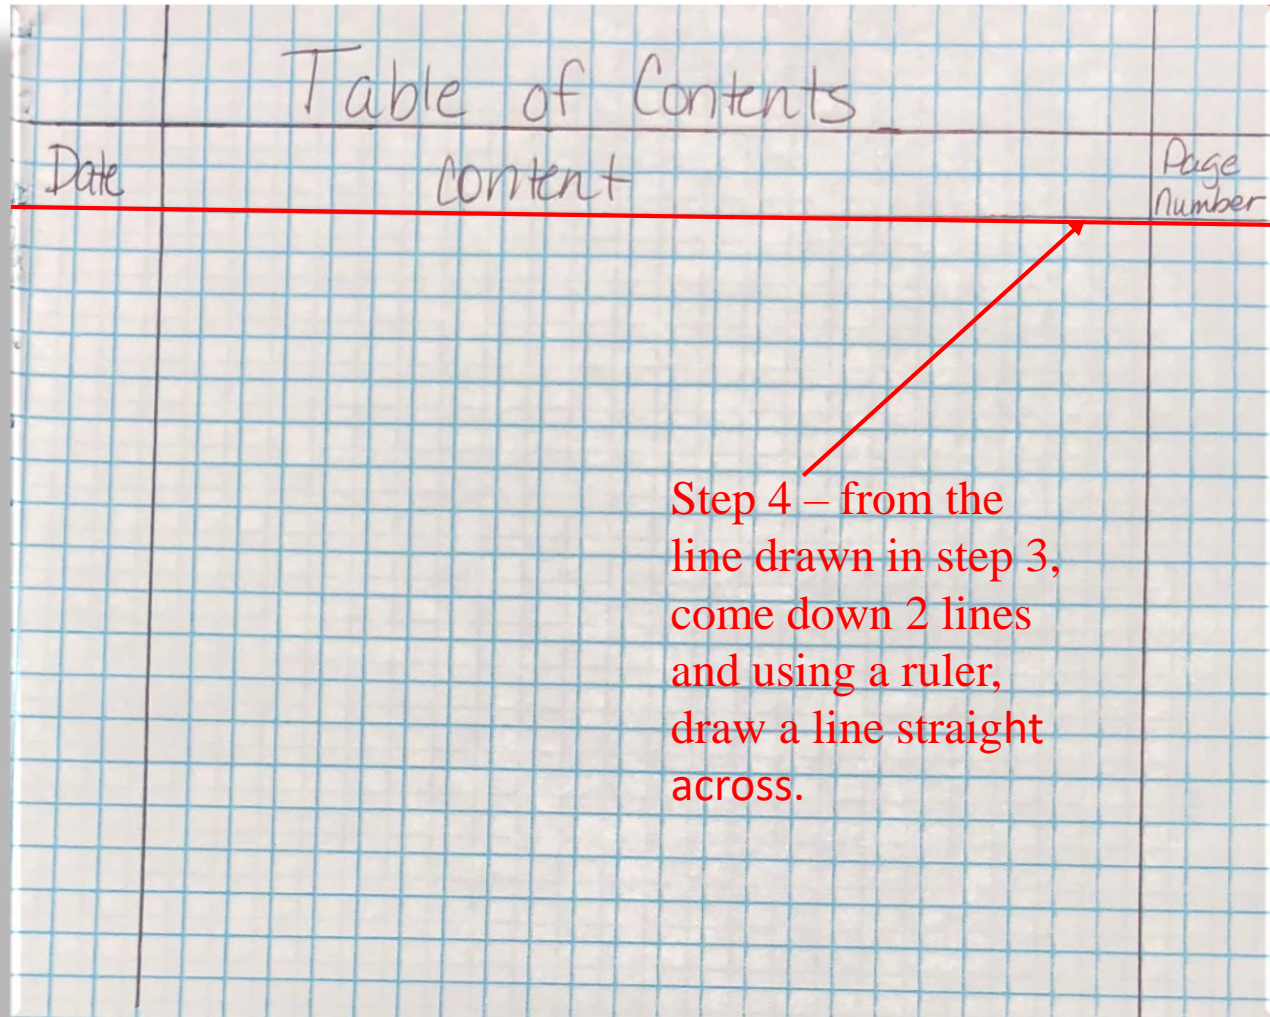 Table of Contents
Date
content
Page
number
Step 4 – from the
line drawn in step 3,
come down 2 lines
and using a ruler,
draw a line straight
across.